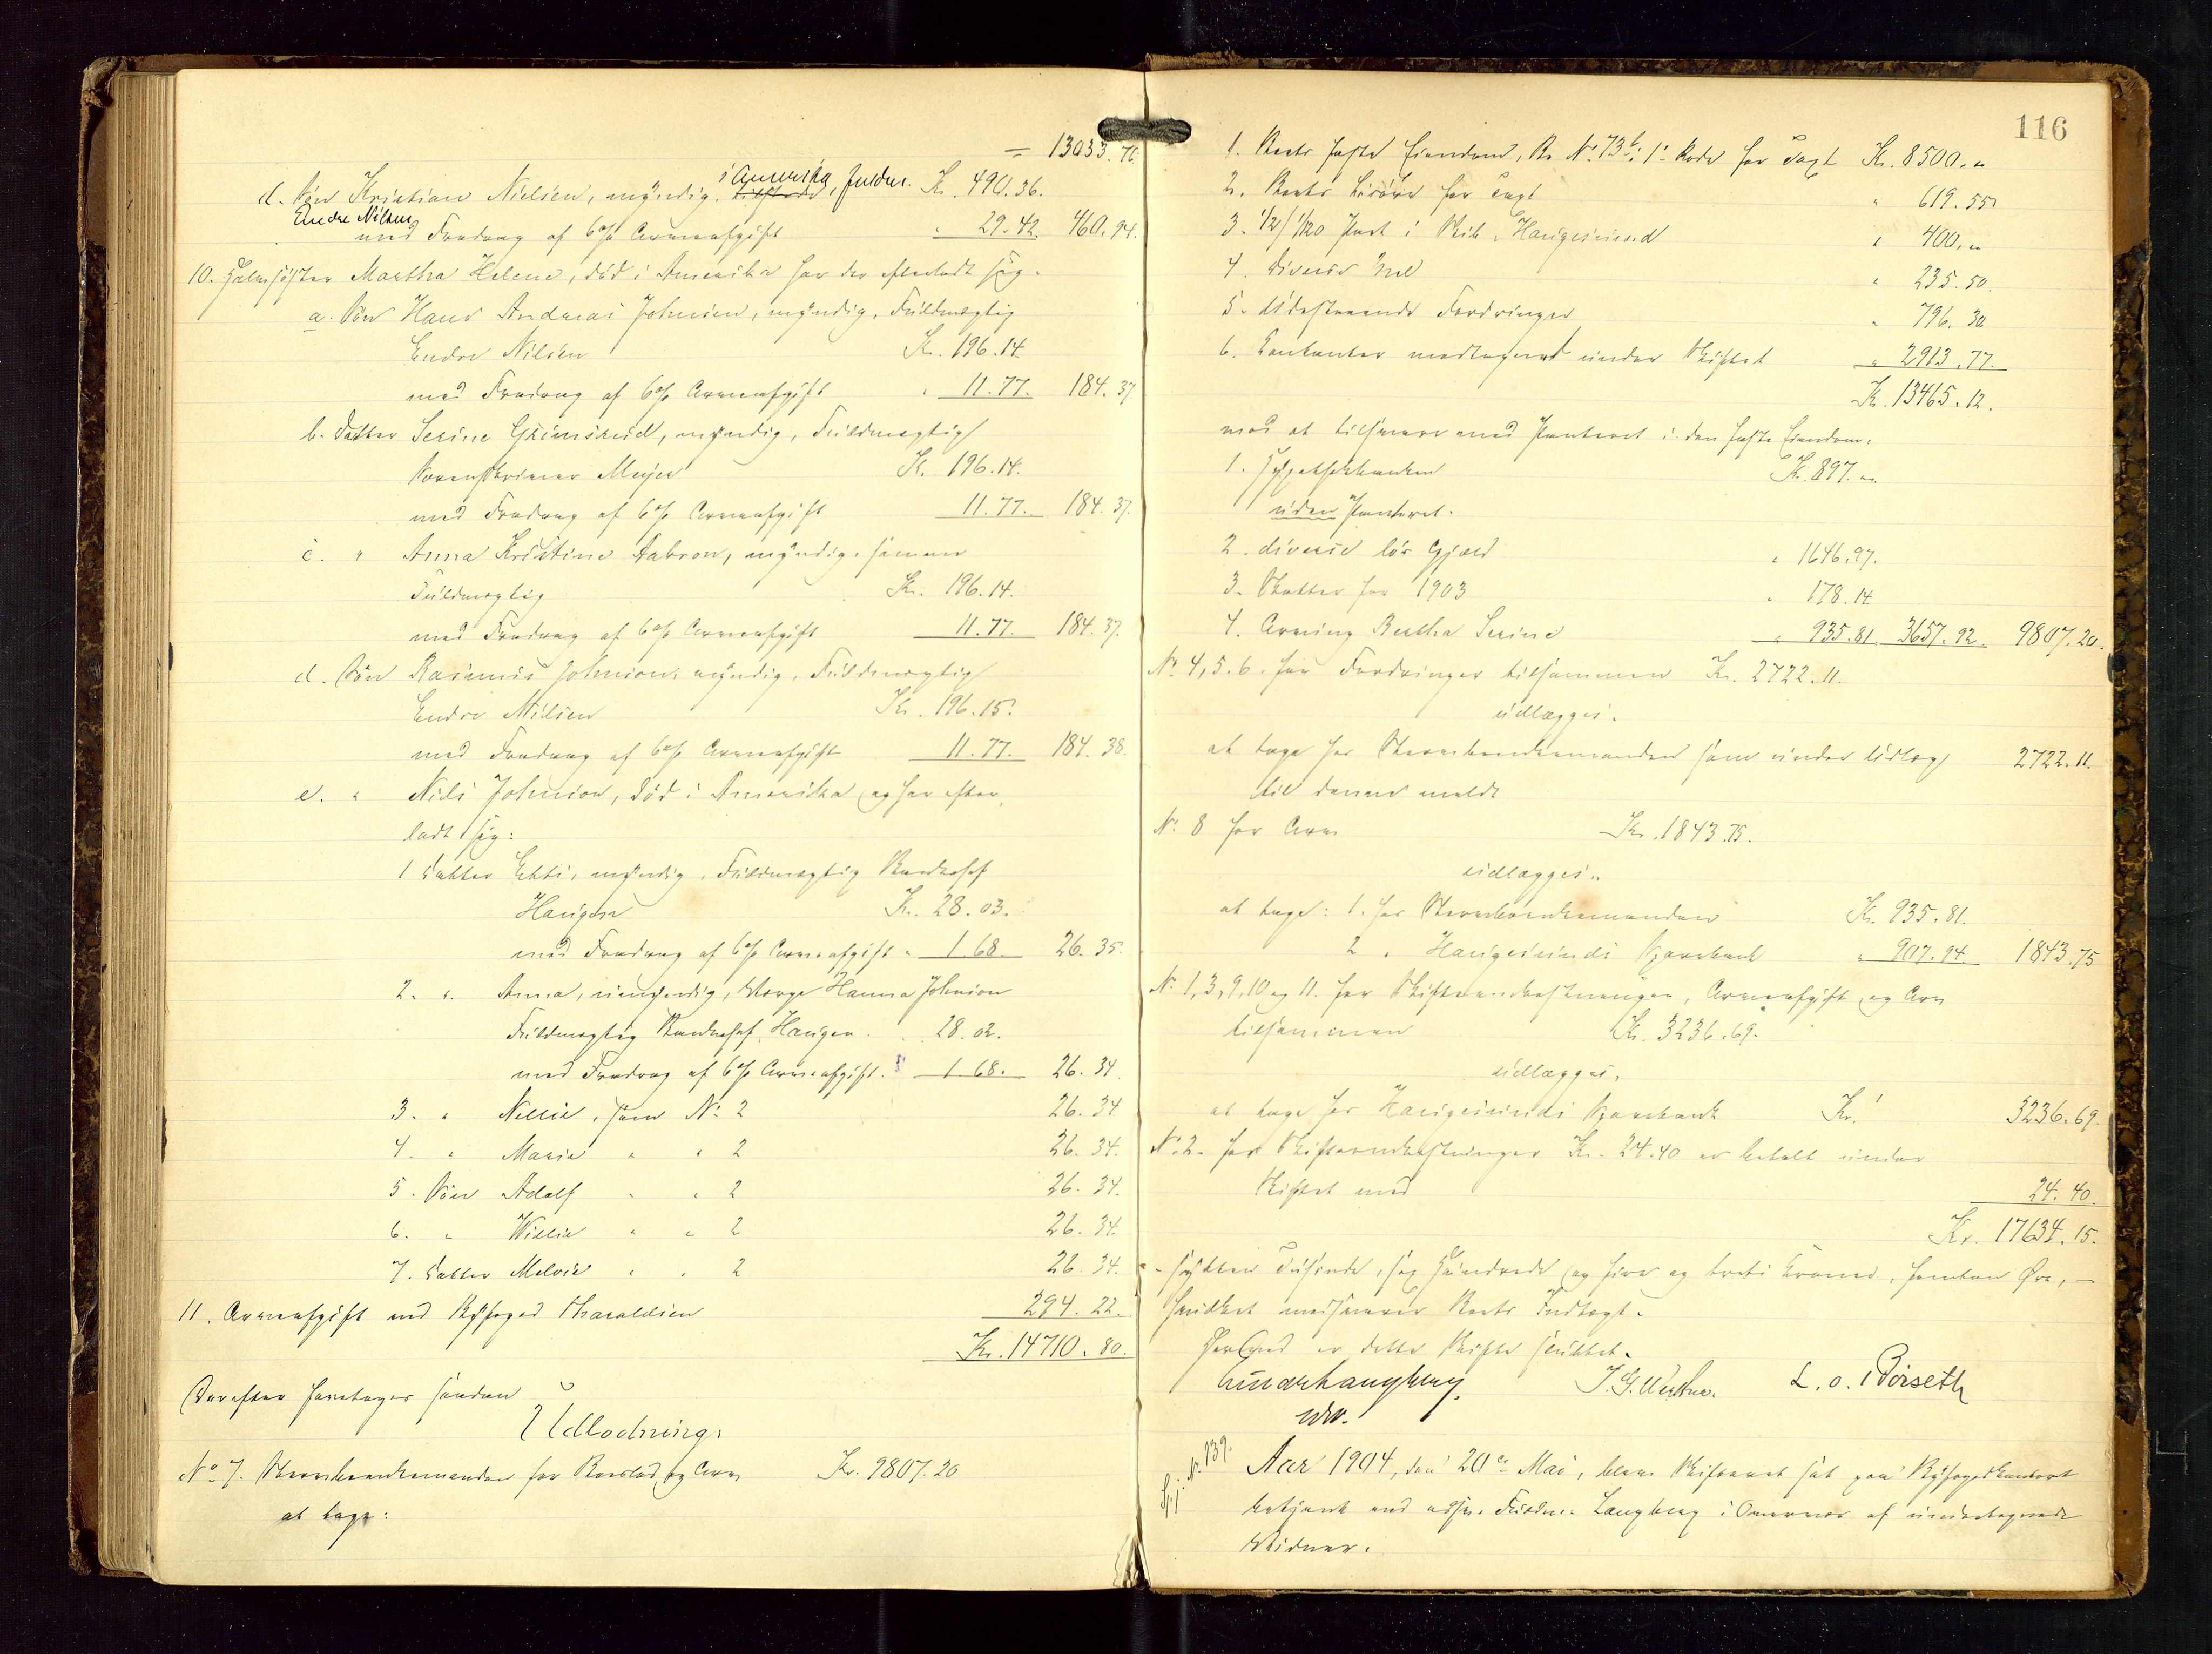 = 13033.76
d. Søn Kristian Nielsen, myndig, i Amerika, Fuldm. Kr. 490.36.
Endre Nilsen
med Fradrag af 6% Arveafgift " 29.42. 460.94.
10. Halvsøster Martha Helene, død i Amerika har der efterladt sig.
a. Søn Hans Andreas Johnsen, myndig, Fuldmægtig
Endre Nilsen Kr. 196.14.
med Fradrag af 6% Arveafgift " 11.77. 184.37
b. Datter Serine Grimsrud, myndig, Fuldmægtig
Sorenskriver Meyer Kr. 196.14.
med Fradrag af 6% Arveafgift 11.77. 184.37.
c. " Anna Kristine Aabron, myndig, samme
Fuldmægtig Kr. 196.14.
med Fradrag af 6% Arveafgift 11.77. 184.37.
d. Søn Rasmus Johnson, myndig, Fuldmægtig
Endre Nilsen Kr. 196.15.
med Fradrag af 6% Arveafgift 11.77. 184.38.
e. " Nils Johnson, død i Amerika og har efter-
ladt sig:
1 Datter Etti, myndig, Fuldmægtig Bankchef
Haugen Kr. 28.03.
med Fradrag af 6% Arveafgift " 1.68. 26.35.
2. " Anna, umyndig, Værge Hanna Johnson
Fuldmægtig Bankchef Haugen. " 28.02.
med Fradrag af 6% Arveafgift. 1.68. 26.34.
3. " Nellie, som No 2 26.34
4. " Marie " " 2 26.34.
5. Søn Adolf " " 2 26.34.
6. " Willie " " 2 26.34.
7. Datter Melvie " " 2 26.34.
11. Arveafgift ved Byfoged Tharaldsen 294.22.
Kr. 14710.80.
Derefter foretages saadan
Udlodning:
No 7. Stervboenkemanden for Boeslod og Arv Kr. 9807.20
at tage:
116
1. Boets faste Eiendom, Br No 73b i 1ste Rode for Taxt Kr. 8500."
2. Boets Løsøre for Taxt " 619.55
3. 1/2/1/20 Part i Skib "Haugesund " 400."
4. diverse Uld " 235.50.
5. Udestaaende Fordringer " 796.30
6. Kontanter modtaget under Skiftet " 2913.77.
Kr. 13465.12.
mod at tilsvare med Panteret i den faste Eiendom:
1. Hypothekbanken Kr. 897."
uden Panteret.
2. diverse løs Gjæld " 1646.97.
3. Skatter for 1903 " 178.14
4. Arving Bertha Serine " 935.81 3657.92. 9807.20.
No 4, 5. 6. for Fordringer tilsammen Kr. 2722.11.
udlægges.
at tage hos Stervboenkemanden som under Udlæg 2722.11.
til denne meldt
No 8 for Arv Kr. 1843.75.
udlægges.
at tage: 1. hos Stervboenkemanden Kr. 935.81.
2 " Haugesunds Sparebank " 907.94. 1843.75
No 1, 3, 9, 10 og 11. for Skifteomkostninger, Arveafgift og Arv
tilsammen Kr. 3236.69.
udlægges.
at tage hos Haugesunds Sparebank Kr. 3236.69.
No 2. for Skifteomkostninger Kr. 24.40 er betalt under
Skiftet med 24.40.
Kr. 17634.15.
- sytten Tusinde, sex Hundrede og fire og treti Kroner, femten Øre, -
hvilket modsvarer Boets Indtægt.
Hermed er dette Skifte sluttet.
Einar Langberg J. G. L. O. Børseth
cst.
Sk.j. No 139.
Aar 1904, den 20de Mai, blev Skifteret sat paa Byfogedkontoret
betjent ved edsv. Fuldm. Langberg i Overvær af undertegnede
Vidner.